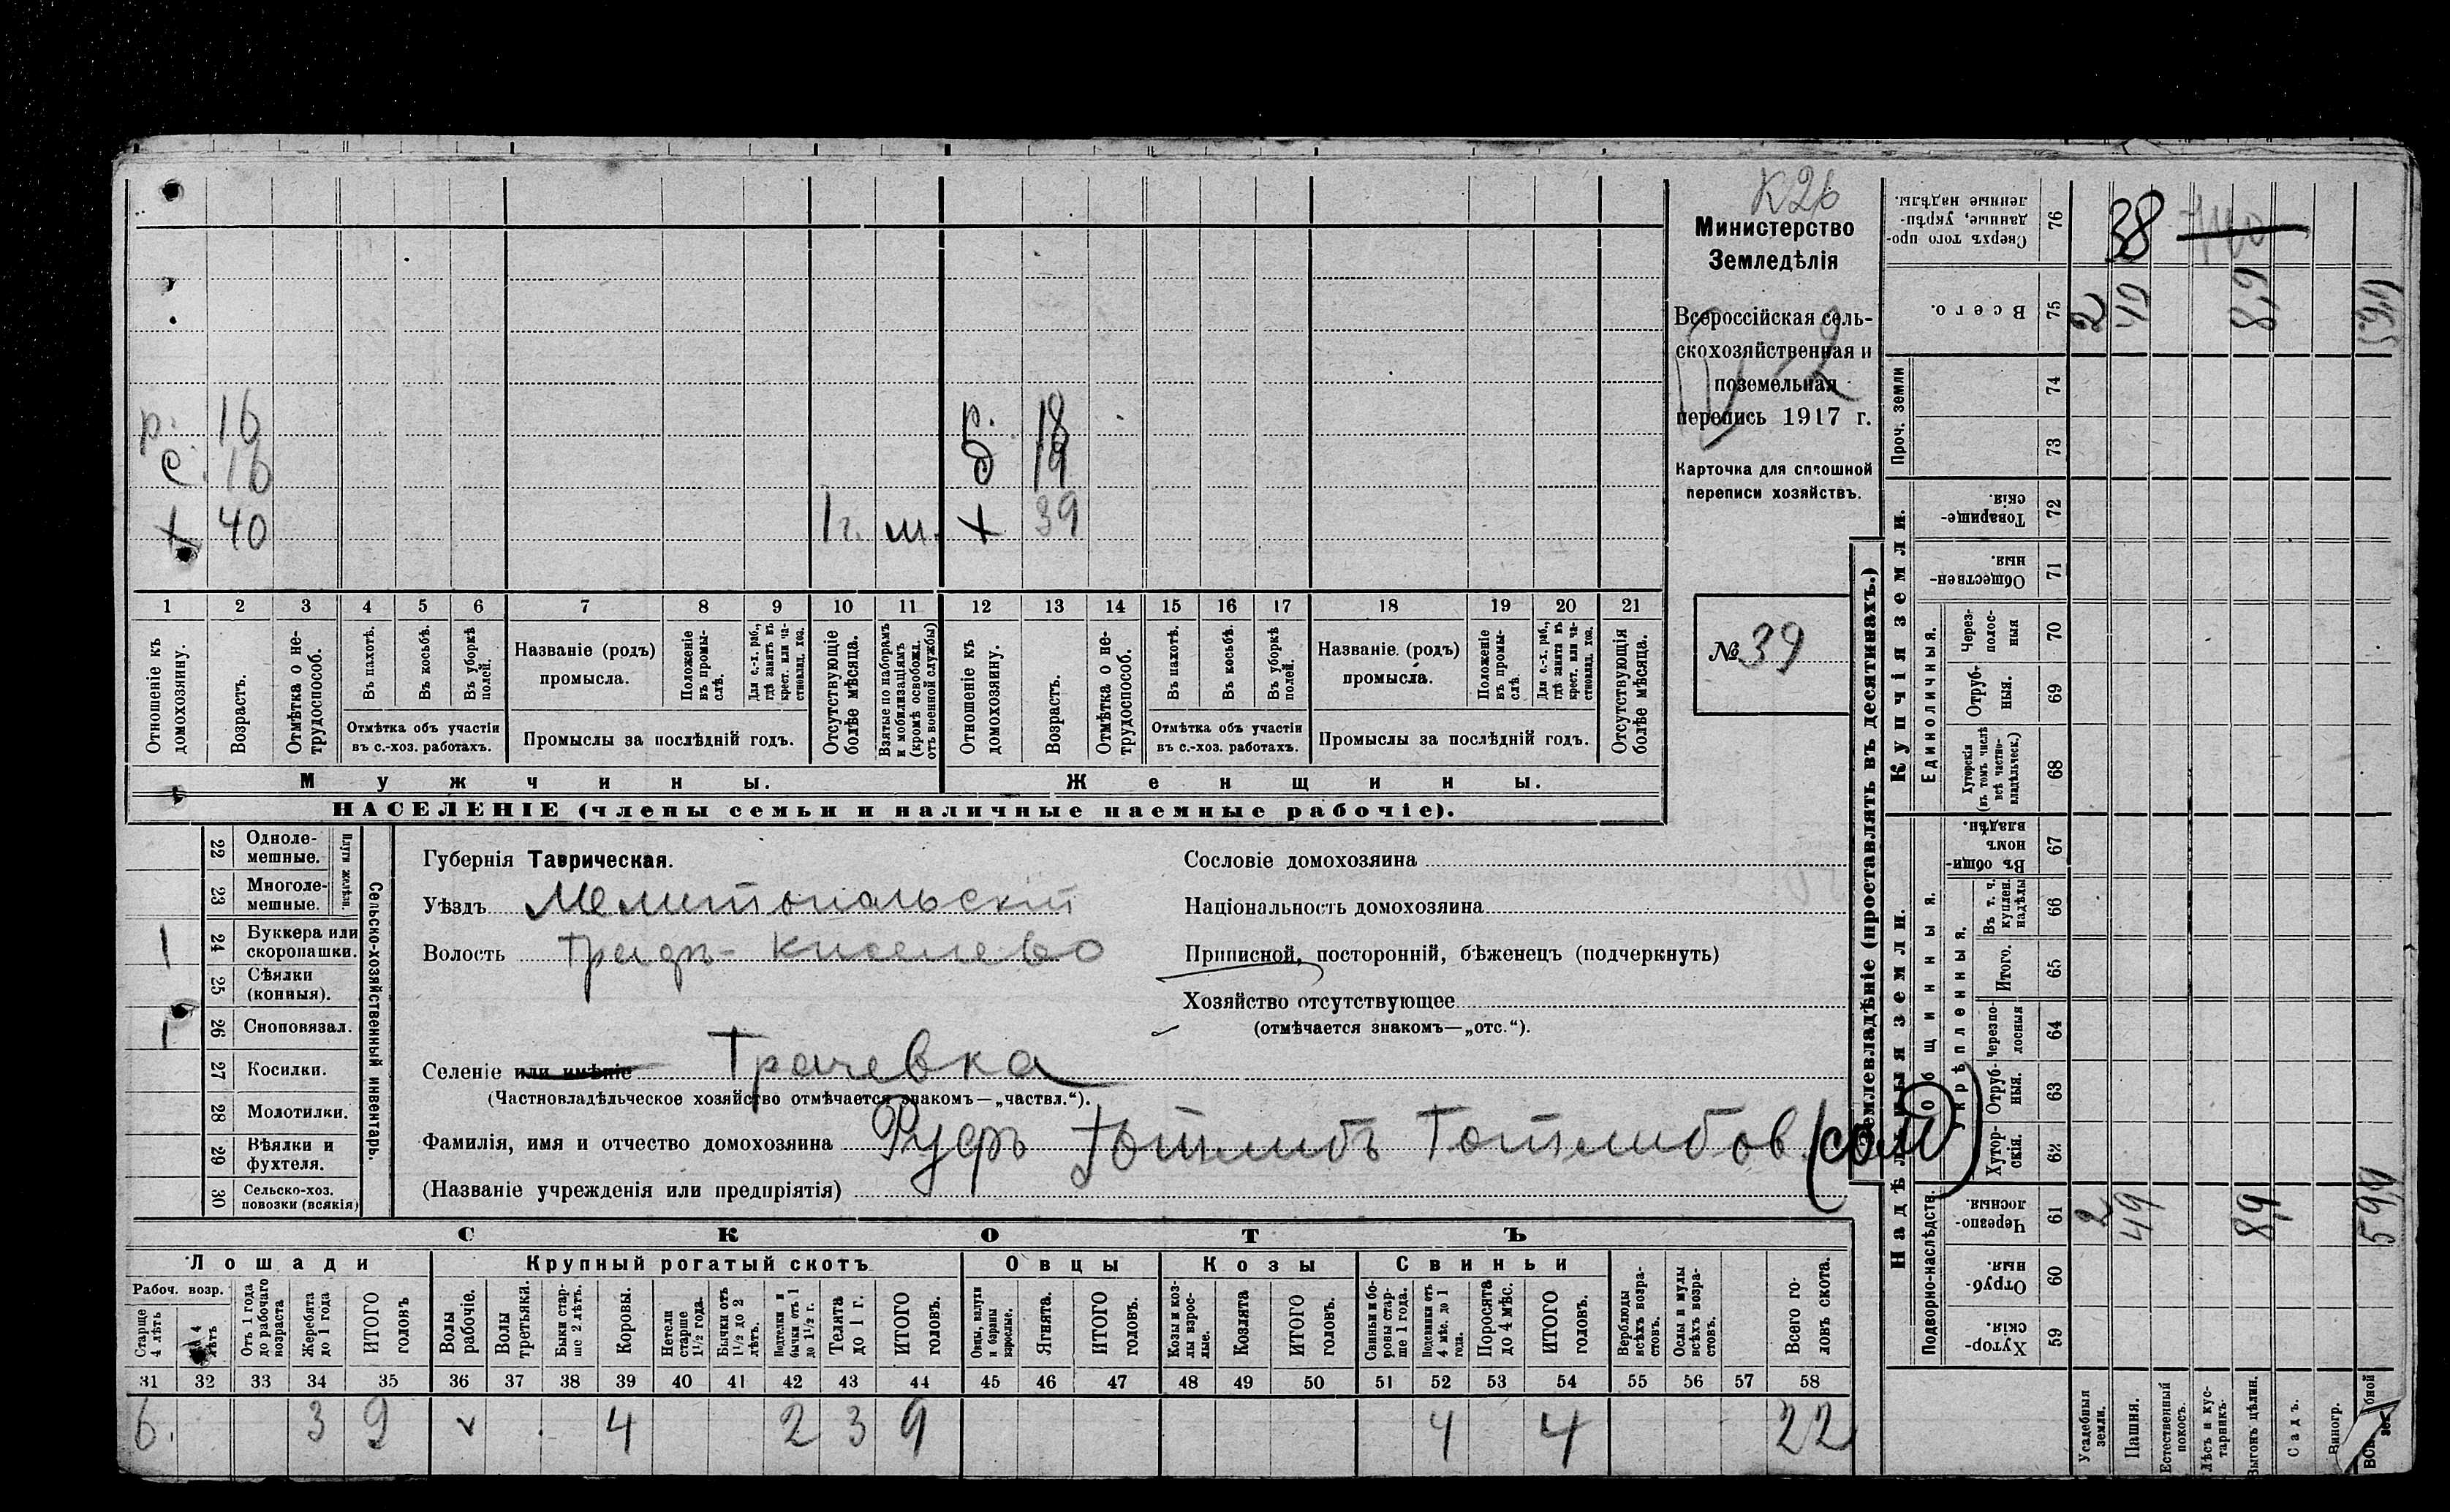 К26
Министерство
Земледѣлія
Всероссійская сель-
скохозяйственная и
поземельная
перепись 1917 г.
Карточка для сплошной
переписи хозяйствъ.
№ 39
р. 16
с. 16
+ 40 1 г. м.
р. 18
д 19
+ 39
1 2 3 4 5 6 7 8 9 10 11 12 13 14 15 16 17 18 19 20 21
Отношеніе къ домохозяину.
Возрастъ.
Отмѣтка о не-трудоспособ.
Въ пахотѣ.
Въ косьбѣ.
Въ уборкѣ полей.
Отмѣтка объ участіи въ с.-хоз. работахъ.
Названіе (родъ) промысла.
Положеніе въ промы-слѣ.
Для с.-х. раб., гдѣ занятъ въ крест. или ча-стновлад. хоз.
Промыслы за послѣдній годъ.
Отсутствующіе болѣе мѣсяца.
Взятые по наборамъ и мобилизаціямъ (кромѣ освобожд. отъ военной службы)
Отношеніе къ домохозяину.
Возрастъ.
Отмѣтка о не-трудоспособ.
Въ пахотѣ.
Въ косьбѣ.
Въ уборкѣ полей.
Отмѣтка объ участіи въ с.-хоз. работахъ.
Названіе (родъ) промысла.
Положеніе въ промы-слѣ.
Для с.-х. раб., гдѣ занята въ крест. или ча-стновлад. хоз.
Промыслы за послѣдній годъ.
Отсутствующія болѣе мѣсяца.
Мужчины.
Женщины.
НАСЕЛЕНІЕ (члены семьи и наличные наемные рабочіе).
Сельско-хозяйственный инвентарь.
Плуги желѣзн.
22 Одноле-мешные.
23 Многоле-мешные.
1 24 Буккера или скоропашки.
25 Сѣялки (конныя).
1 26 Сноповязал.
27 Косилки.
28 Молотилки.
29 Вѣялки и фухтеля.
30 Сельско-хоз. повозки (всякія)
Губернія Таврическая.
Уѣздъ Мелитопольскій
Волость Тридъ-Киселево
Селеніе или имѣніе Трачевка
(Частновладѣльческое хозяйство отмѣчается знакомъ—„частвл.“).
Фамилія, имя и отчество домохозяина Руфъ Готлибъ Готлибов. (сол)
(Названіе учрежденія или предпріятія)
Сословіе домохозяина
Національность домохозяина
Приписной, посторонній, бѣженецъ (подчеркнуть)
Хозяйство отсутствующее
(отмѣчается знакомъ—„отс.“).
СКОТЪ
Лошади
Крупный рогатый скотъ
Овцы
Козы
Свиньи
Рабоч. возр.
Старше 4 лѣтъ
4 лѣтъ
Отъ 1 года до рабочаго возраста
Жеребята до 1 года
ИТОГО головъ
Волы рабочіе.
Волы третьяки.
Быки стар-ше 2 лѣтъ.
Коровы.
Нетели старше 1½ года.
Бычки отъ 1½ до 2 лѣтъ.
Подтелки и бычки отъ 1 до 1½ г.
Телята до 1 г.
ИТОГО головъ.
Овцы, валухи и бараны взрослые.
Ягнята.
ИТОГО головъ.
Козы и коз-лы взрос-лые.
Козлята
ИТОГО головъ.
Свиньи и бо-ровы стар-ше 1 года.
Подсвинки отъ 4 мѣс. до 1 года.
Поросята до 4 мѣс.
ИТОГО головъ.
Верблюды всѣхъ возра-стовъ.
Ослы и мулы всѣхъ возра-стовъ.
Всего го-ловъ скота.
31 32 33 34 35 36 37 38 39 40 41 42 43 44 45 46 47 48 49 50 51 52 53 54 55 56 57 58
6. 3 9 4 2 3 9 4 4 22
Землевладѣніе (проставлять въ десятинахъ.)
Надѣльныя земли.
Купчія земли.
Проч. земли
Подворно-наслѣдств.
Общинныя.
Укрѣпленныя.
Единоличныя.
76 Сверхъ того про-данные, укрѣп-ленные надѣлы. 38
75 Всего. 2 49 8,9 59,9
74
73
72 Товарище-скія.
71 Обществен-ныя.
70 Через-полос-ныя
69 Отруб-ныя.
68 Хуторскія (въ томъ числѣ всѣ частно-владѣльческ.)
67 Въ общи-номъ владѣн.
66 Въ т. ч. куплен. надѣлы
65 Итого.
64 черезпо-лосныя
63 Отруб-ныя.
62 Хутор-скія.
61 Черезпо-лосныя. 2 49 8,9 59,9
60 Отруб-ныя.
59 Хутор-скія.
Усадебныя земли.
Пашня.
Естественный покосъ.
Лѣсъ и кус-тарникъ.
Выгонъ цѣлин.
Садъ.
Виногр.